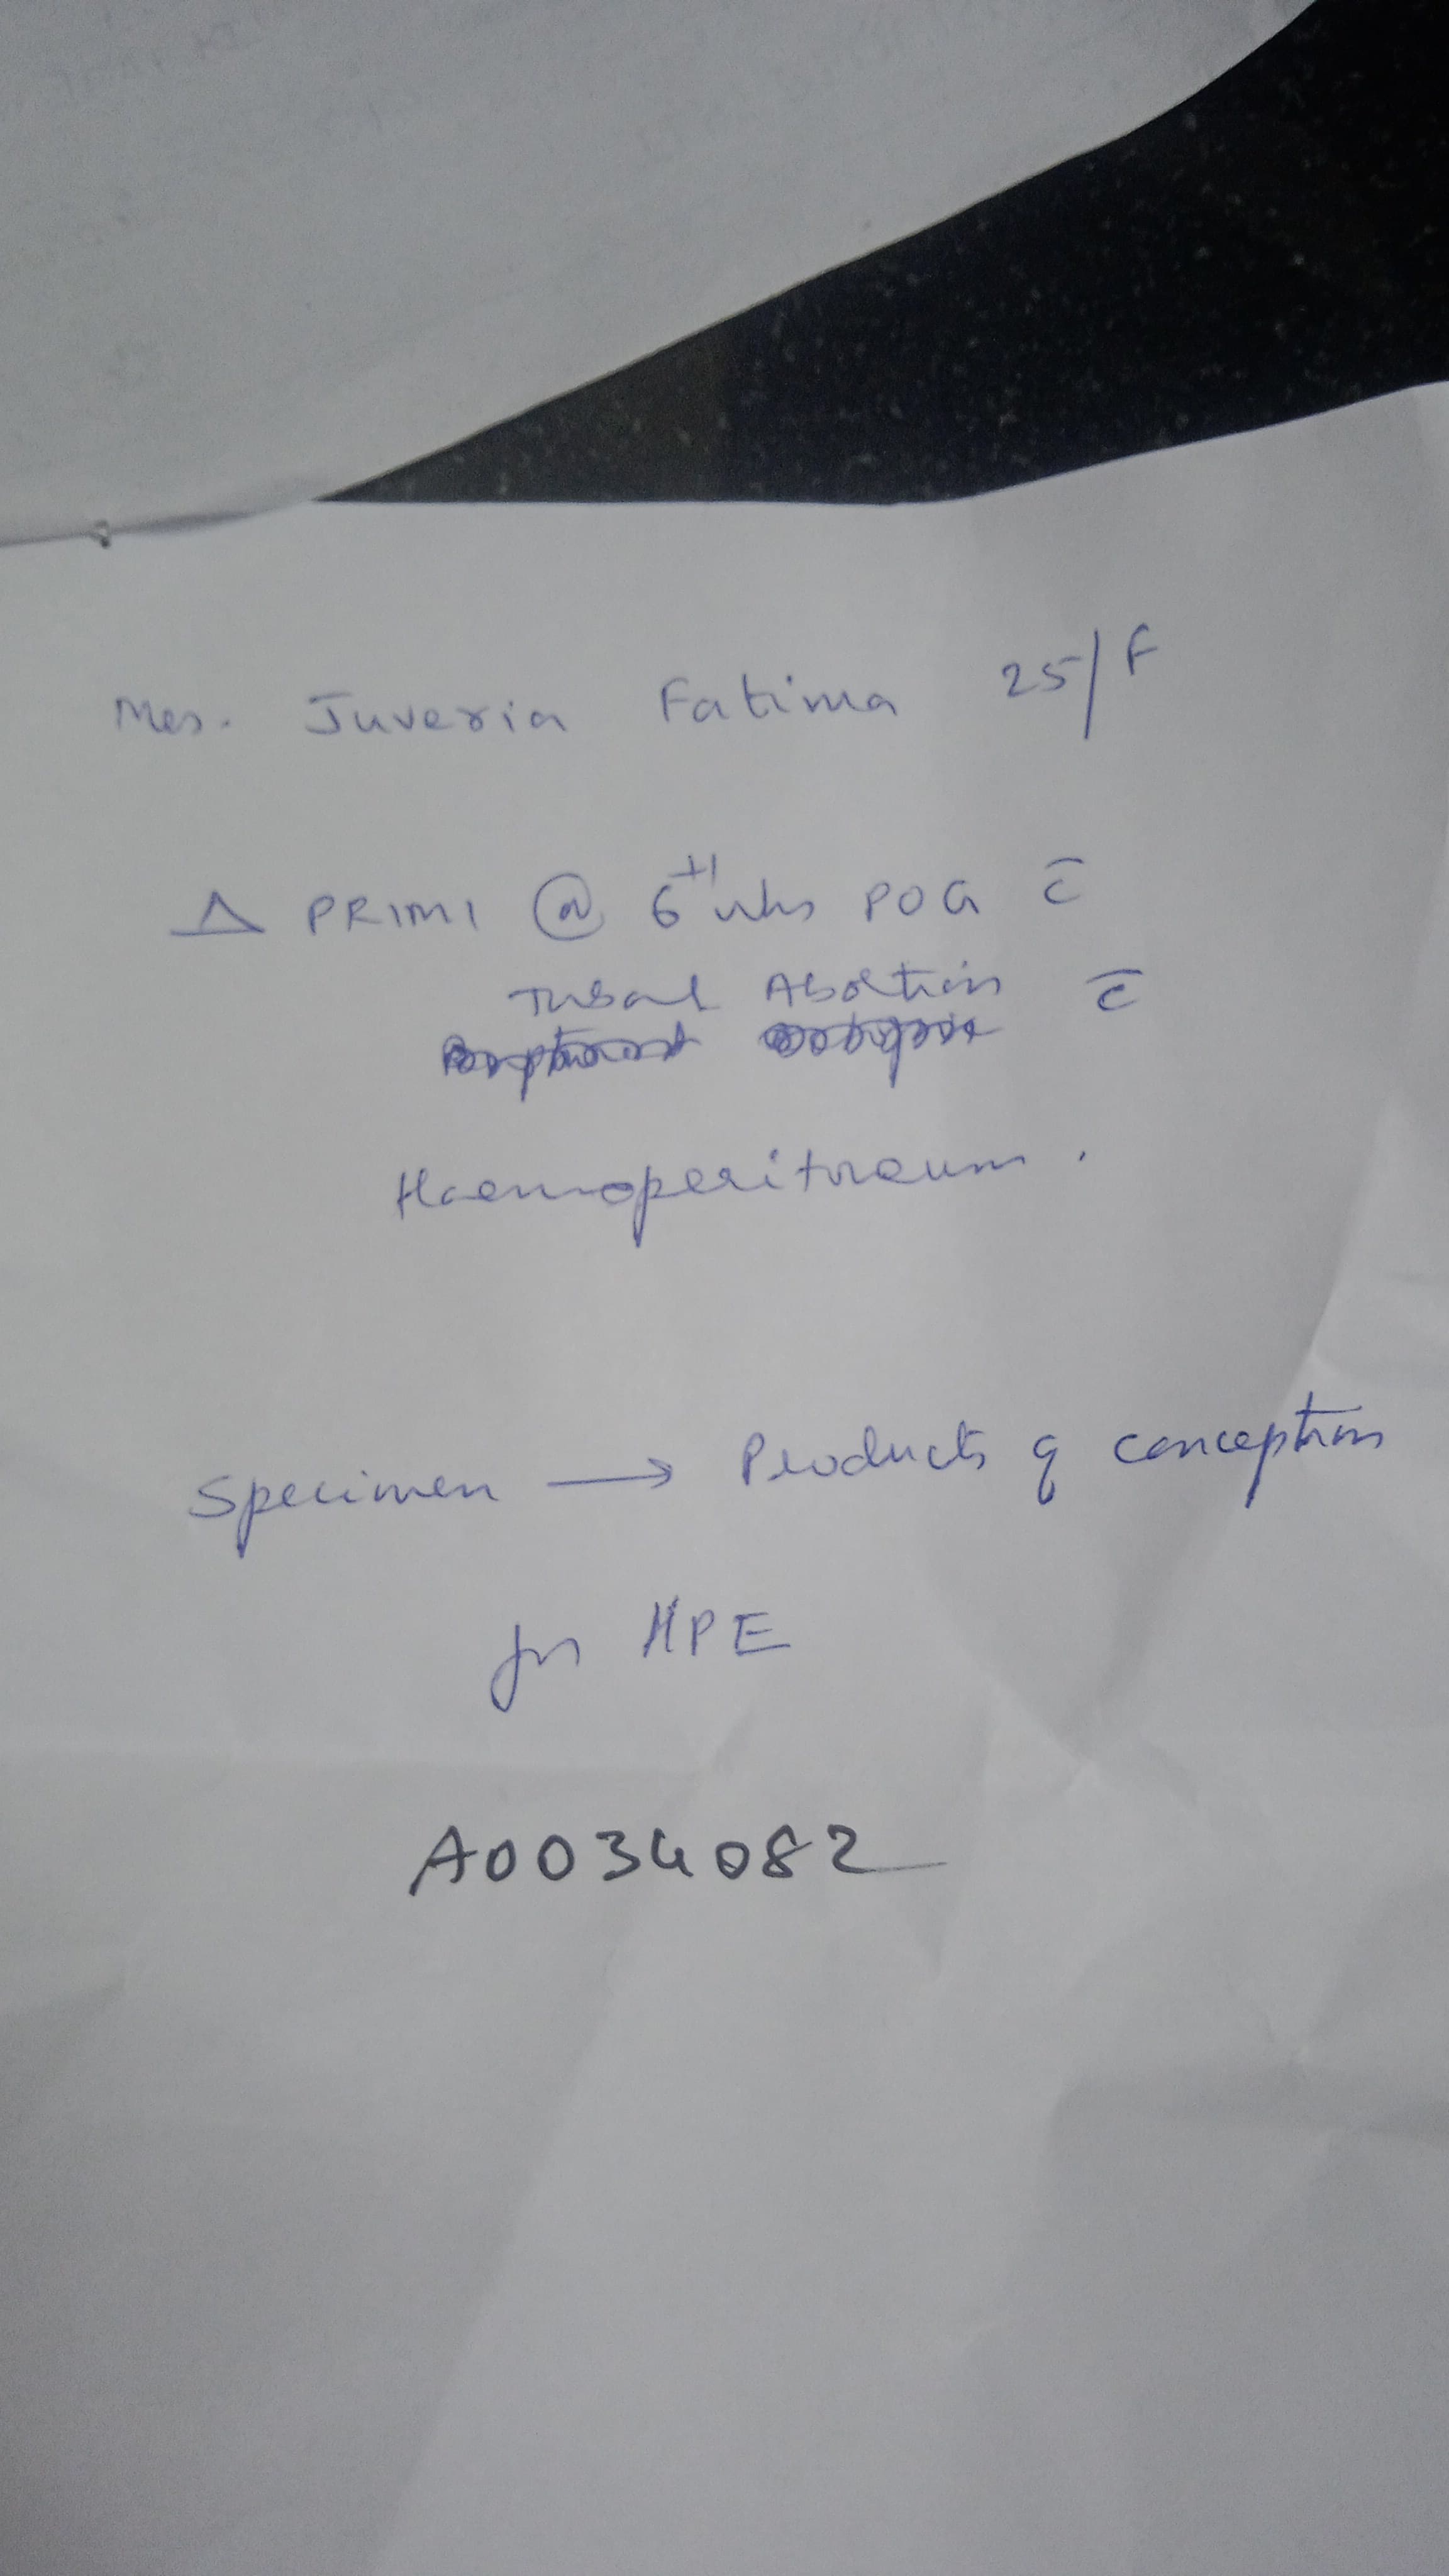 Mrs. Juveria Fatima 25/F
Δ PRIMI @ 6+1 wks POG c̄
Tubal Abortion c̄
Haemoperitoneum.
Specimen → Products of conception
for HPE
A0034082